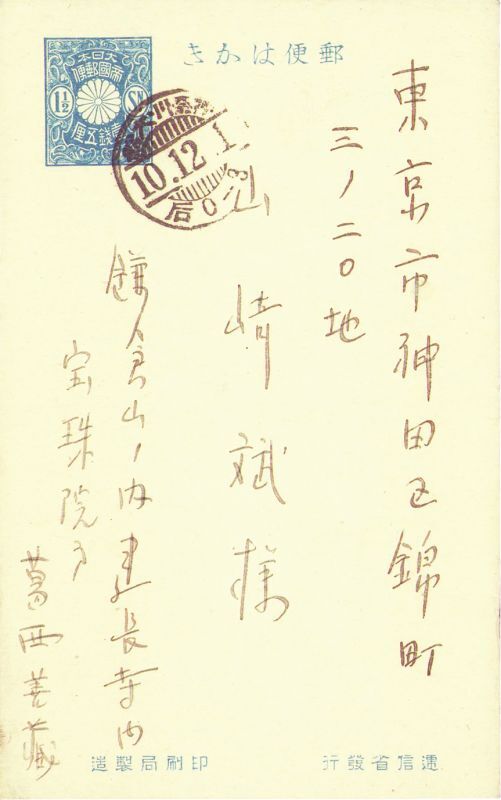 きかは便郵
大日本
帝國郵便
1½ Sn
壹錢五厘
10.12.1
后0-3
東京市神田区錦町
三ノ二〇地
山崎斌様
鎌倉山ノ内建長寺内
宝珠院方
葛西善蔵
造製局刷印
行發省信逓